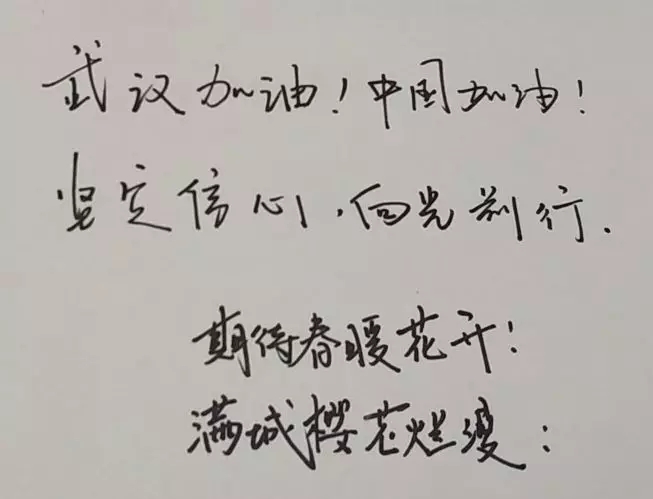 武汉加油！中国加油！
坚定信心，向光前行.
期待春暖花开！
满城樱花烂漫：